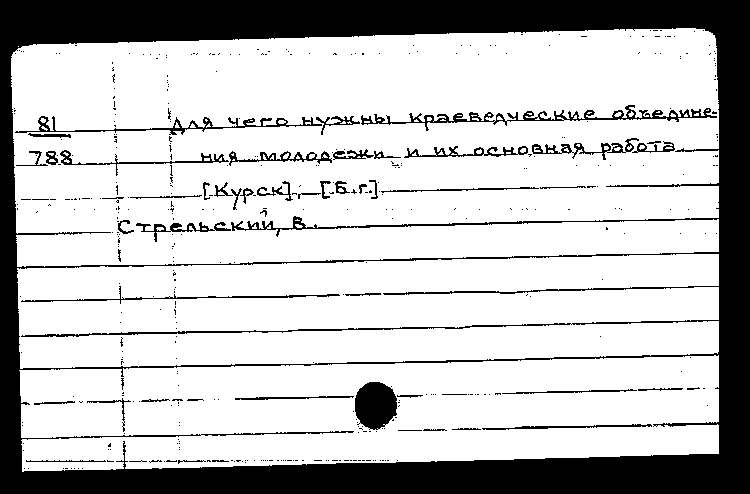 81 Для чего нужны краеведческие объедине-
788 ния молодежи и их основная работа.
[Курск], [Б.г.]
Стрельский, В.